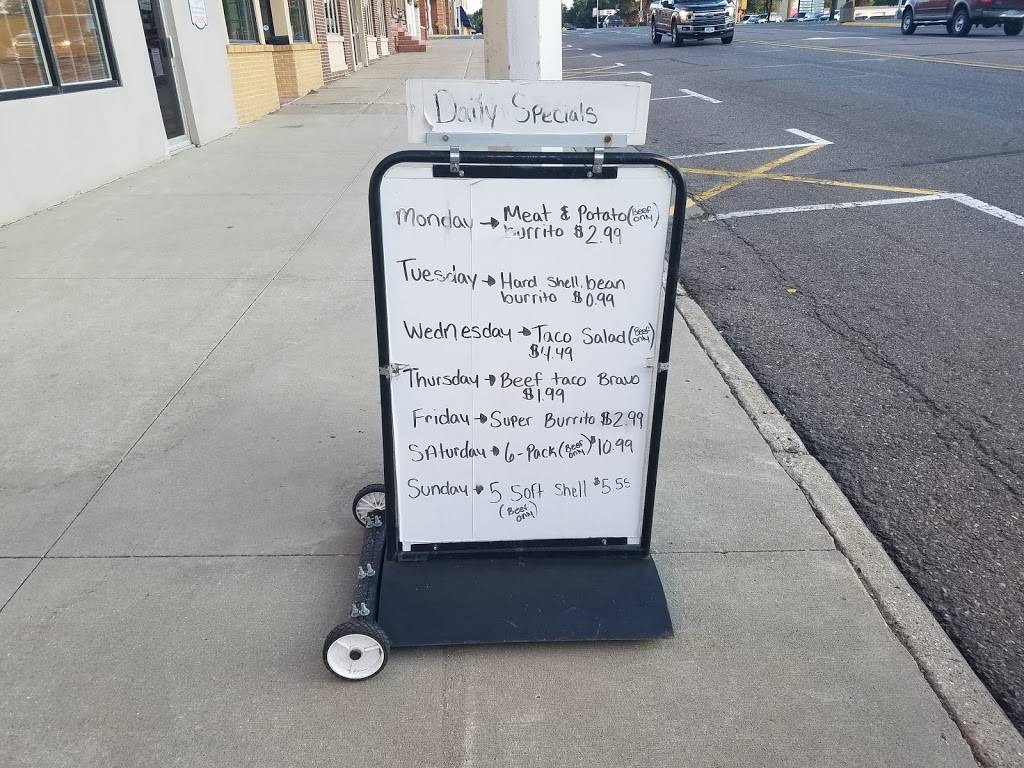 Daily Specials
Monday → Meat & Potato (Beef only)
burrito $2.99
Tuesday → Hard shell, bean
burrito $0.99
Wednesday → Taco Salad (Beef only)
$4.49
Thursday → Beef taco Bravo
$1.99
Friday → Super Burrito $2.99
SAturday → 6-Pack (Beef only) $10.99
Sunday → 5 Soft Shell $5.55
(Beef only)